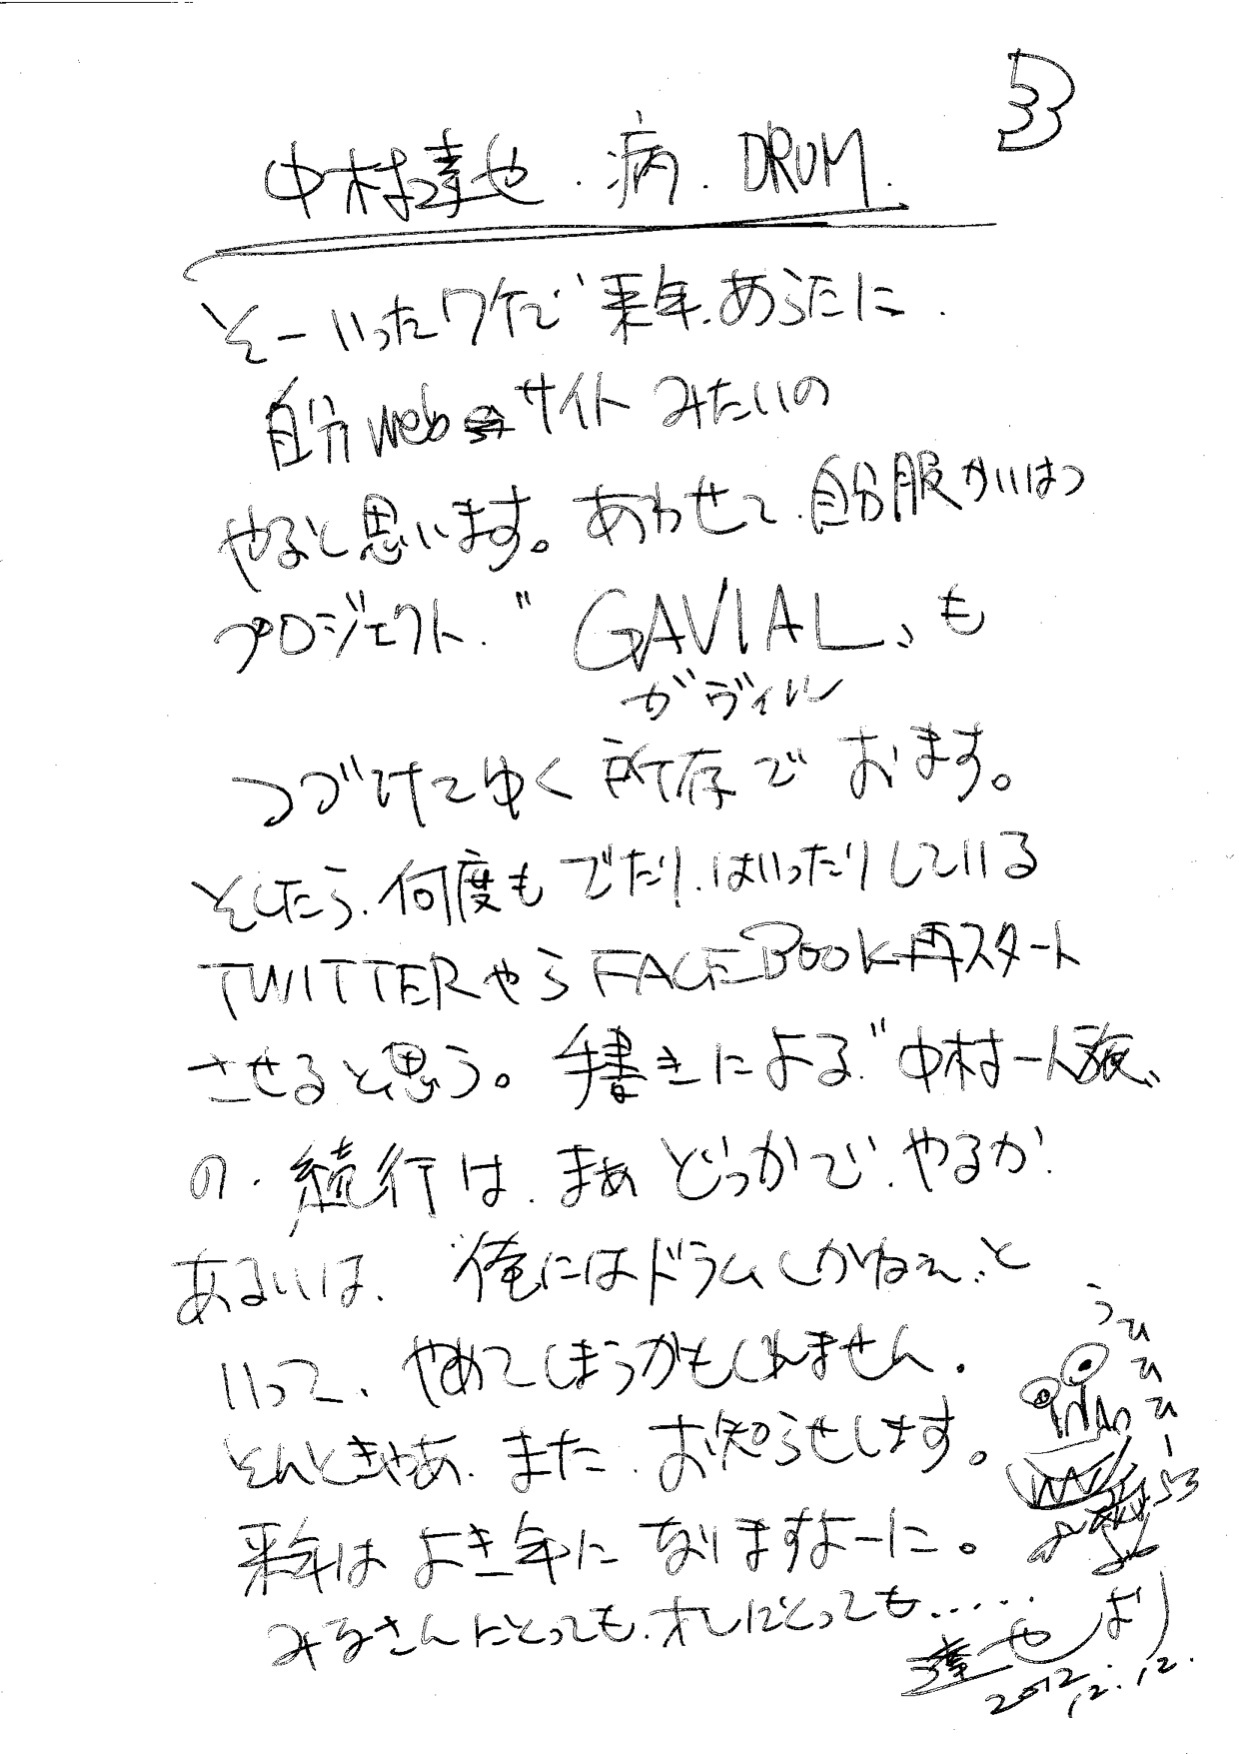 53
中村達也.病.DRUM.
そーいったワケで来年.あらたに.
自分webサイトみたいの
やると思います。あわせて.自分服かいはつ
プロジェクト.〝GAVIAL〟も
ガヴィル
つづけてゆく所存でおます。
そしたら.何度もでたり.はいったりしている
TWITTERやらFACEBOOK再スタート
させると思う。手書きによる〝中村一人旅〟
の.続行は.まぁどっかで.やるか.
あるいは.〝俺にはドラムしかねぇ〟と
いって、やめてしまうかもしれません.
そんときゃあ.また.お知らせします。
来年はよき年になりますよーに。
みなさんにとっても.オレにとっても.....
うひ
ひ
ひ
ー
53
達也より
2012.12.12.